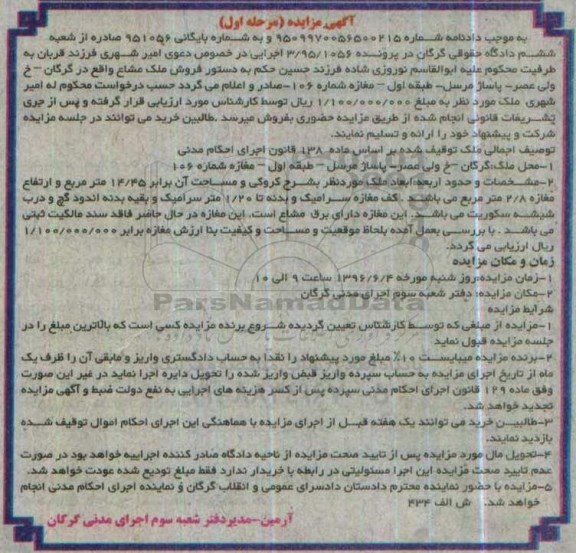 آگهی مزایده (مرحله اول)
به موجب دادنامه شماره ۹۵۰۹۹۷۰۰۵۶۵۰۰۲۱۵ و به شماره بایگانی ۹۵۱۰۵۶ صادره از شعبه
ششم دادگاه حقوقی گرگان در پرونده ۳/۹۵/۱۰۵۶ اجرایی در خصوص دعوی امیر شهری فرزند قربان به
طرفیت محکوم علیه ابوالقاسم نوروزی شاده فرزند حسین حکم به دستور فروش ملک مشاع واقع در گرگان – خ
ولی عصر– پاساژ مرسل– طبقه اول – مغازه شماره ۱۰۶–صادر و اعلام می گردد حسب درخواست محکوم له امیر
شهری، ملک مورد نظر به مبلغ ۱/۱۰۰/۰۰۰/۰۰۰ ریال توسط کارشناس مورد ارزیابی قرار گرفته و پس از جری
تشریفات قانونی انجام شده از طریق مزایده حضوری بفروش میرسد .طالبین خرید می توانند در جلسه مزایده
شرکت و پیشنهاد خود را ارائه و تسلیم نمایند.
توصیف اجمالی ملک توقیف شده بر اساس ماده ۱۳۸ قانون اجرای احکام مدنی
۱–محل ملک:گرگان –خ ولی عصر– پاساژ مرسل – طبقه اول – مغازه شماره ۱۰۶
۲–مشخصات و حدود اربعه:ابعاد ملک موردنظر بشرح کروکی و مساحت آن برابر ۱۴/۴۵ متر مربع و ارتفاع
مغازه ۲/۸ متر مربع می باشد . کف مغازه سرامیک و بدنه تا ۱/۲۰ متر سرامیک و بقیه بدنه اندود گچ و درب
شیشه سکوریت می باشد. این مغازه دارای برق مشاع است. این مغازه در حال حاضر فاقد سند مالکیت ثبتی
می باشد . با بررسی بعمل آمده بلحاظ موقعیت و مساحت و کیفیت بنا ارزش مغازه برابر ۱/۱۰۰/۰۰۰/۰۰۰
ریال ارزیابی می گردد.
زمان و مکان مزایده
۱–زمان مزایده:روز شنبه مورخه ۱۳۹۶/۶/۴ ساعت ۹ الی ۱۰
۲–مکان مزایده: دفتر شعبه سوم اجرای مدنی گرگان
شرایط مزایده
۱–مزایده از مبلغی که توسط کارشناس تعیین گردیده شروع برنده مزایده کسی است که بالاترین مبلغ را در
جلسه مزایده قبول نماید
۲–برنده مزایده میبایست ۱۰٪ مبلغ مورد پیشنهاد را نقدا به حساب دادگستری واریز و مابقی آن را ظرف یک
ماه از تاریخ اجرای مزایده به حساب سپرده واریز قبض واریز شده را تحویل دایره اجرا نماید در غیر این صورت
وفق ماده ۱۲۹ قانون اجرای احکام مدنی سپرده پس از کسر هزینه های اجرایی به نفع دولت ضبط و آگهی مزایده
تجدید خواهد شد.
۳–طالبین خرید می توانند یک هفته قبل از اجرای مزایده با هماهنگی این اجرای احکام اموال توقیف شده
بازدید نمایند.
۴–تحویل مال مورد مزایده پس از تایید صحت مزایده از ناحیه دادگاه صادر کننده اجراییه خواهد بود در صورت
عدم تایید صحت مزایده این اجرا مسئولیتی در رابطه با خریدار ندارد فقط مبلغ تودیع شده عودت خواهد شد.
۵–مزایده با حضور نماینده محترم دادستان دادسرای عمومی و انقلاب گرگان و نماینده اجرای احکام مدنی انجام
خواهد شد. ش الف ۴۳۴
آرمین–مدیردفتر شعبه سوم اجرای مدنی گرگان
ParsNamadData